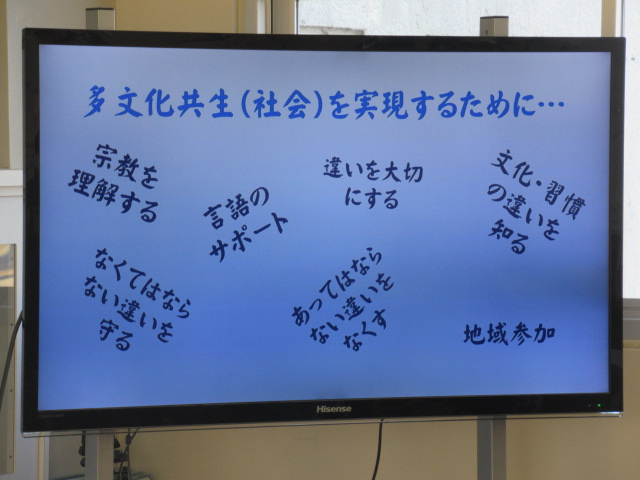 多文化共生(社会)を実現するために…
宗教を
理解する
言語の
サポート
違いを大切
にする
文化・習慣
の違いを
知る
なくてはなら
ない違いを
守る
あってはなら
ない違いを
なくす
地域参加
Hisense